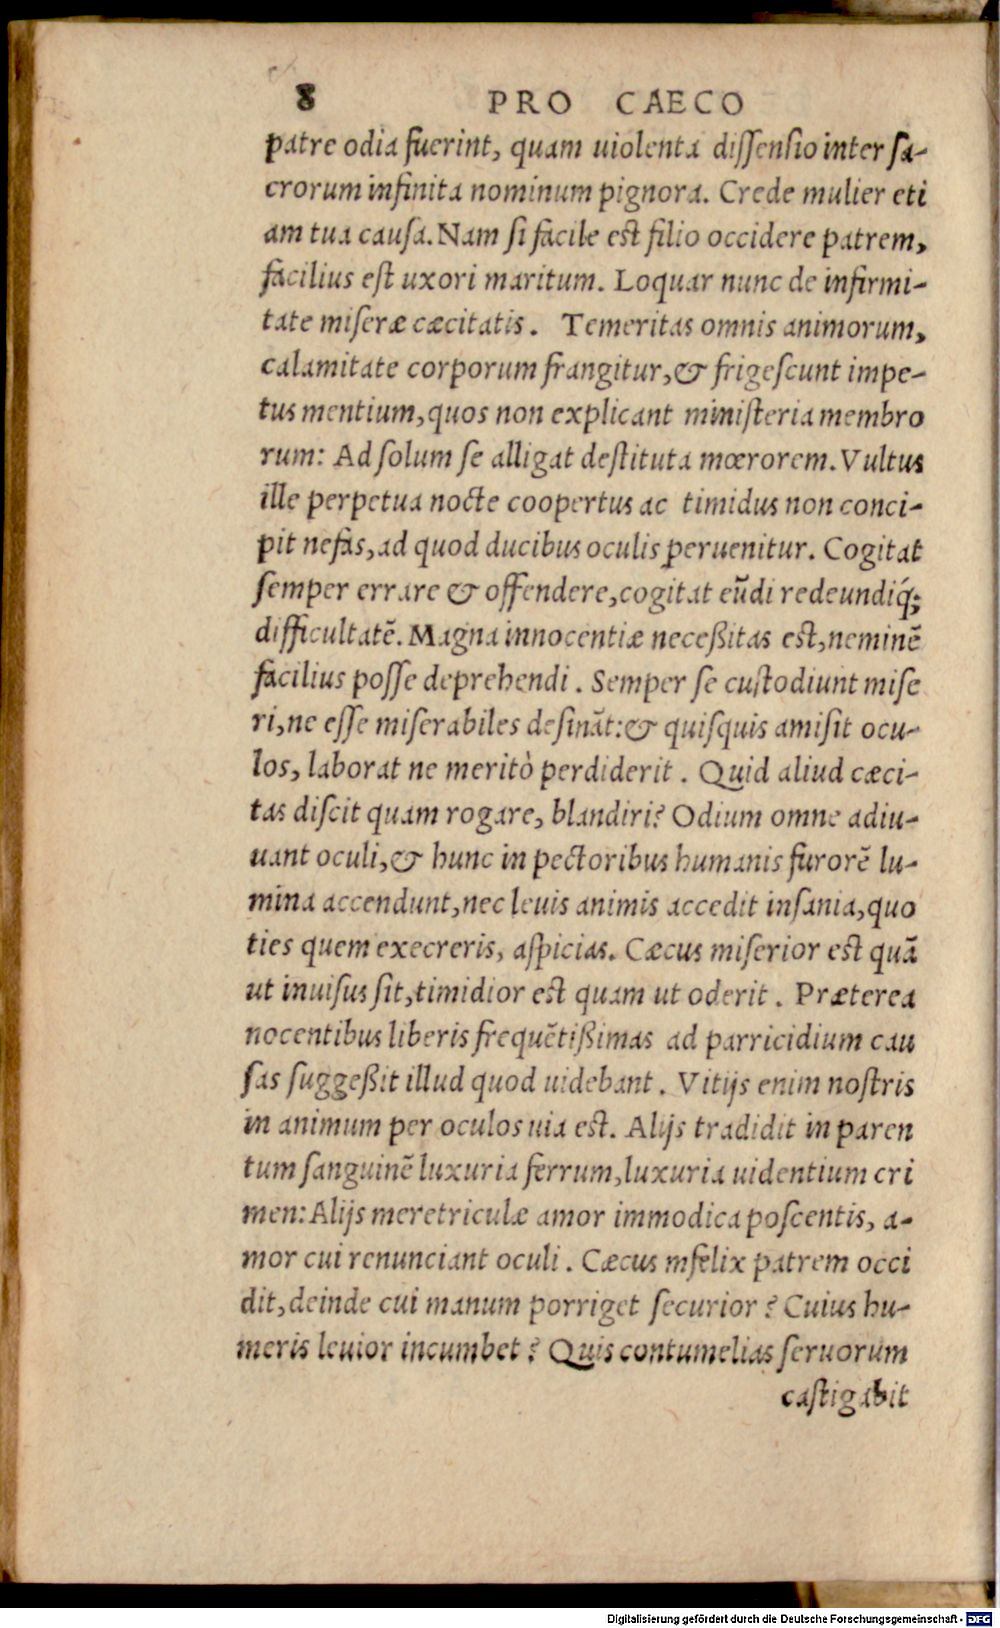 8 PRO CAECO
patre odia fuerint, quam uiolenta dissensio inter sa-
crorum infinita nominum pignora. Crede mulier eti
am tua causa. Nam si facile est filio occidere patrem,
facilius est uxori maritum. Loquar nunc de infirmi-
tate miseræ cæcitatis. Temeritas omnis animorum,
calamitate corporum frangitur, & frigescunt impe-
tus mentium, quos non explicant ministeria membro
rum: Ad solum se alligat destituta mœrorem. Vultus
ille perpetua nocte coopertus ac timidus non conci-
pit nefas, ad quod ducibus oculis ꝑuenitur. Cogitat
semper errare & offendere, cogitat eūdi redeundiq́;
difficultatē. Magna innocentiæ neceßitas est, neminē
facilius posse deprehendi. Semper se custodiunt mise
ri, ne esse miserabiles desināt: & quisquis amisit ocu-
los, laborat ne meritò perdiderit. Quid aliud cæci-
tas discit quam rogare, blandiri? Odium omne adiu-
uant oculi, & hunc in pectoribus humanis furorē lu-
mina accendunt, nec leuis animis accedit insania, quo
ties quem execreris, aspicias. Cæcus miserior est quā
ut inuisus sit, timidior est quam ut oderit. Præterea
nocentibus liberis frequētißimas ad parricidium cau
sas suggeßit illud quod uidebant. Vitijs enim nostris
in animum per oculos uia est. Alijs tradidit in paren
tum sanguinē luxuria ferrum, luxuria uidentium cri
men: Alijs meretriculæ amor immodica poscentis, a-
mor cui renunciant oculi. Cæcus infelix patrem occi
dit, deinde cui manum porriget securior? Cuius hu-
meris leuior incumbet? Quis contumelias seruorum
castigabit
Digitalisierung gefördert durch die Deutsche Forschungsgemeinschaft - DFG